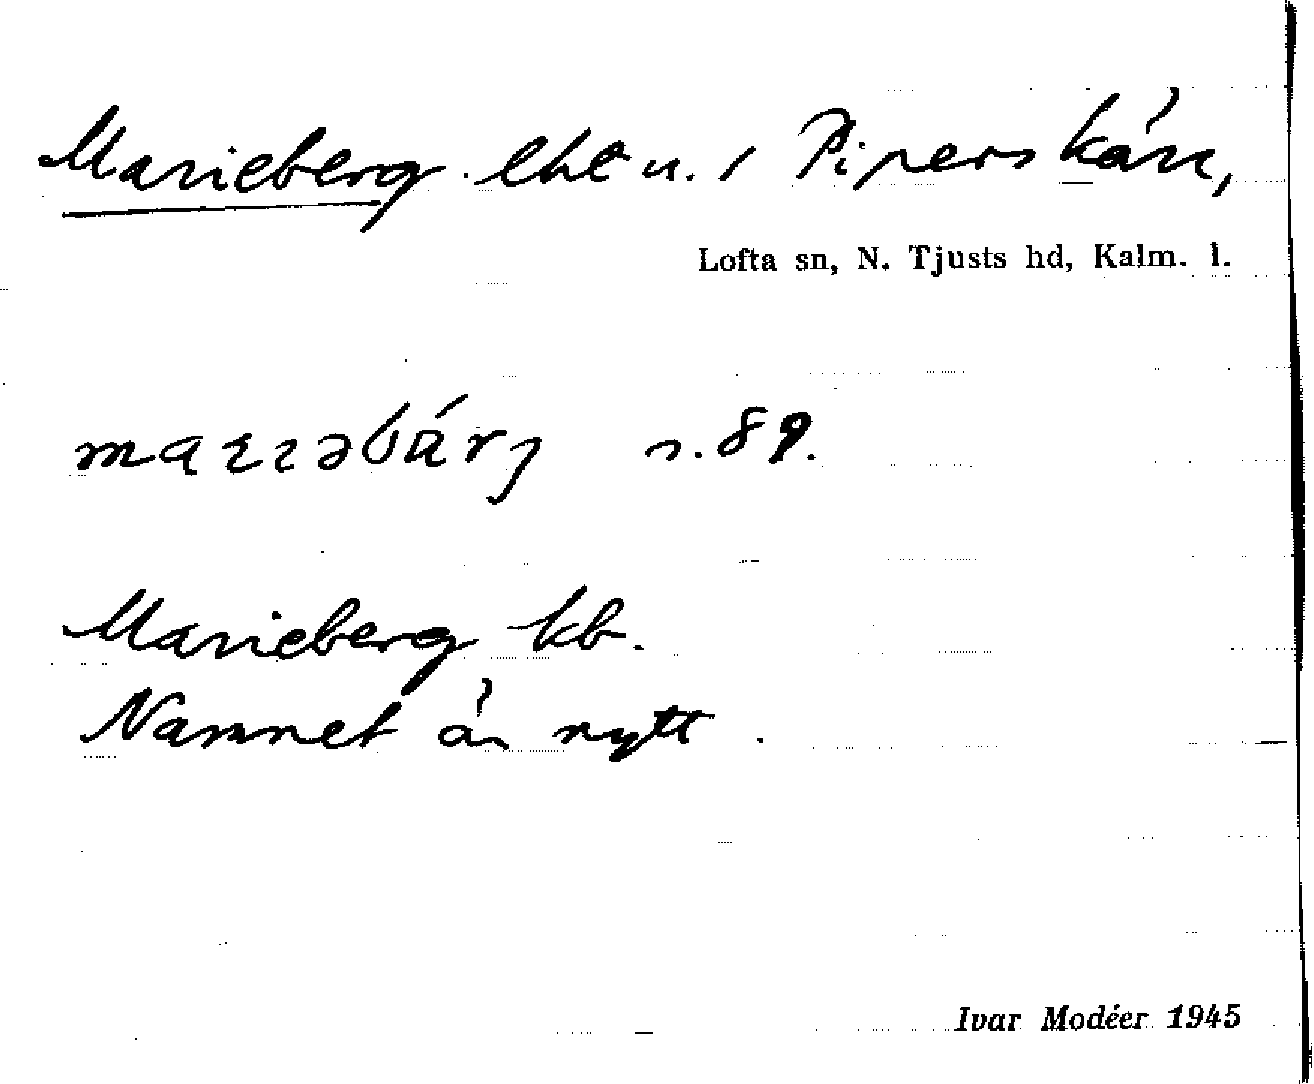 Marieberg lht u. / Piperskärr,
Lofta sn, N. Tjusts hd, Kalm. l.
s. 89.
Marieberg kb.
Namnet är nytt .
Ivar Modéer 1945